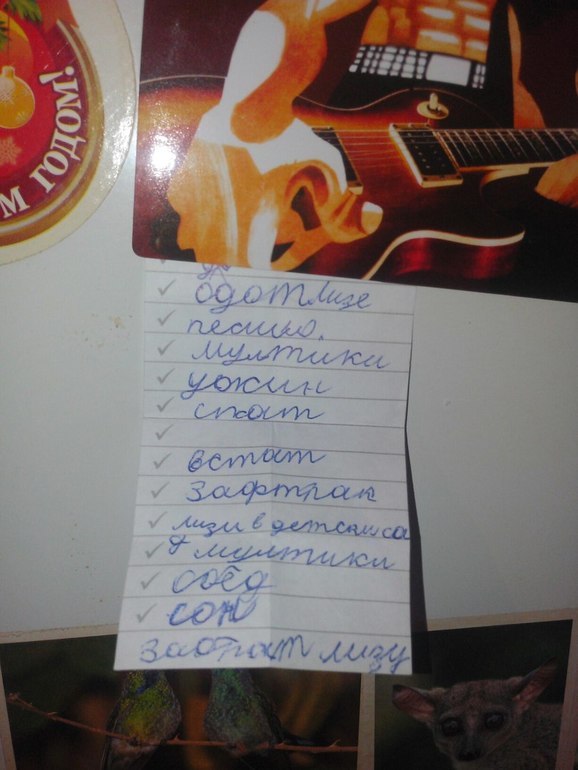 М ГОДОМ!
одот лизе
песню.
мултики
ужин
спат
встат
зафтрак
лизи в детски са
я мултики
соед
сон
забрат лизу